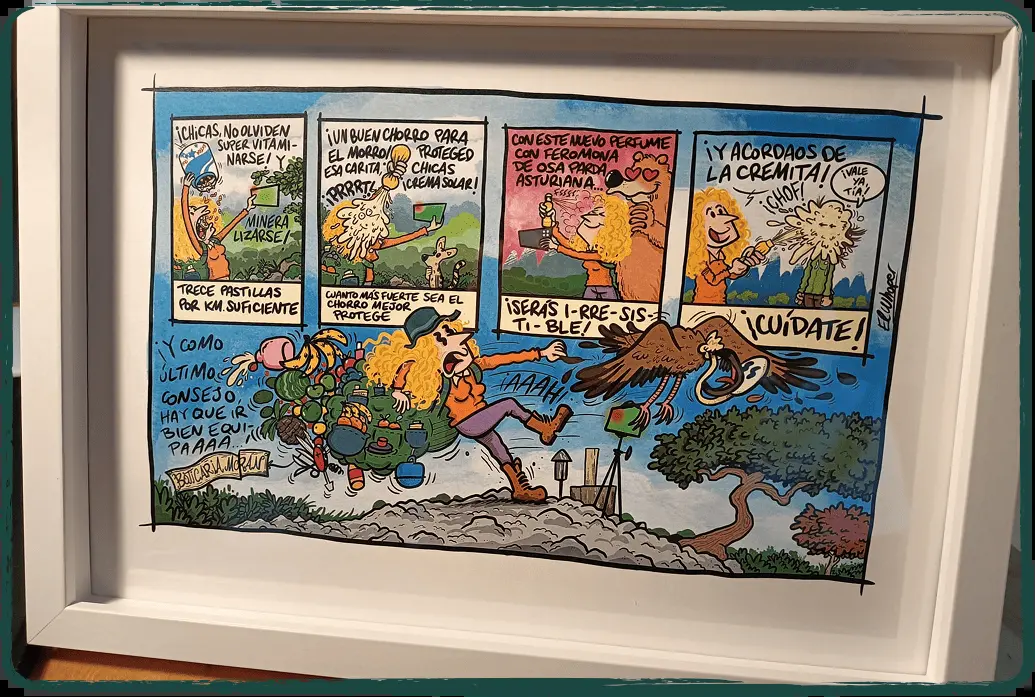 ¡CHICAS, NO OLVIDEN
SUPER VITAMI-
NARSE! Y
MINERA
LIZARSE!
TRECE PASTILLAS
POR KM. SUFICIENTE
¡UN BUEN CHORRO PARA
EL MORRO!
ESA CARITA,
PROTEGED
CHICAS
¡CREMA SOLAR!
¡PRRRT!
CUANTO MÁS FUERTE SEA EL
CHORRO MEJOR
PROTEGE
CON ESTE NUEVO PERFUME
CON FEROMONA
DE OSA PARDA
ASTURIANA...
FSSSS
¡SERÁS I-RRE-SIS-
TI-BLE!
¡Y ACORDAOS DE
LA CREMITA!
¡CHOF!
¡VALE
YA,
TÍA!
¡CUÍDATE!
¡Y COMO
ÚLTIMO
CONSEJO,
HAY QUE IR
BIEN EQUI-
PAAAA...
¡AAAH!